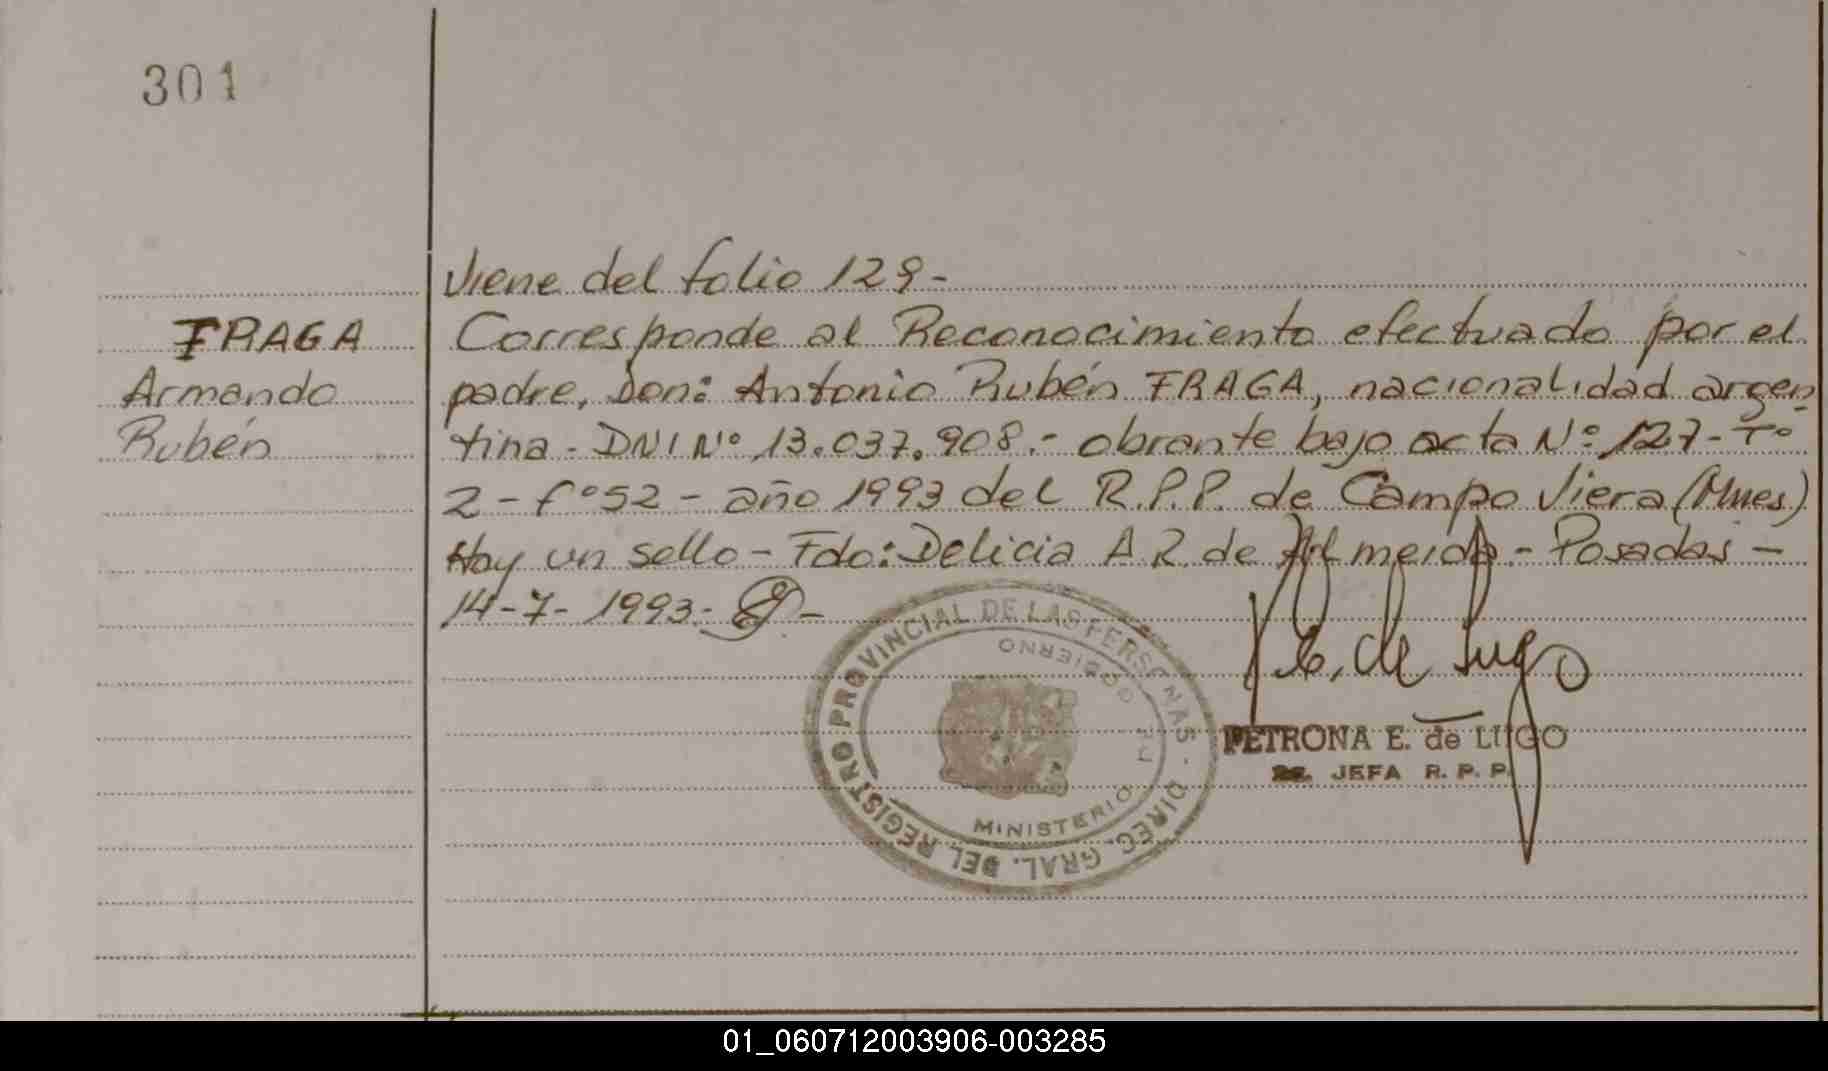 301
FRAGA
Armando
Rubén
Viene del folio 129-
Corresponde al Reconocimiento efectuado por el
padre, Don: Antonio Rubén FRAGA, nacionalidad argen
tina - DNI Nº 13.037.908.- obrante bajo acta Nº 127- Tº
2 - fº 52 - año 1993 del R.P.P. de Campo Viera (Mnes)
Hay un sello - Fdo: Delicia A R. de Almeida - Posadas -
14-7-1993.-
DIREC. GRAL. DEL REGISTRO PROVINCIAL DE LAS PERSONAS -
MINISTERIO DE GOBIERNO
P. E. de Lugo
PETRONA E. de LUGO
JEFA R. P. P.
01_060712003906-003285